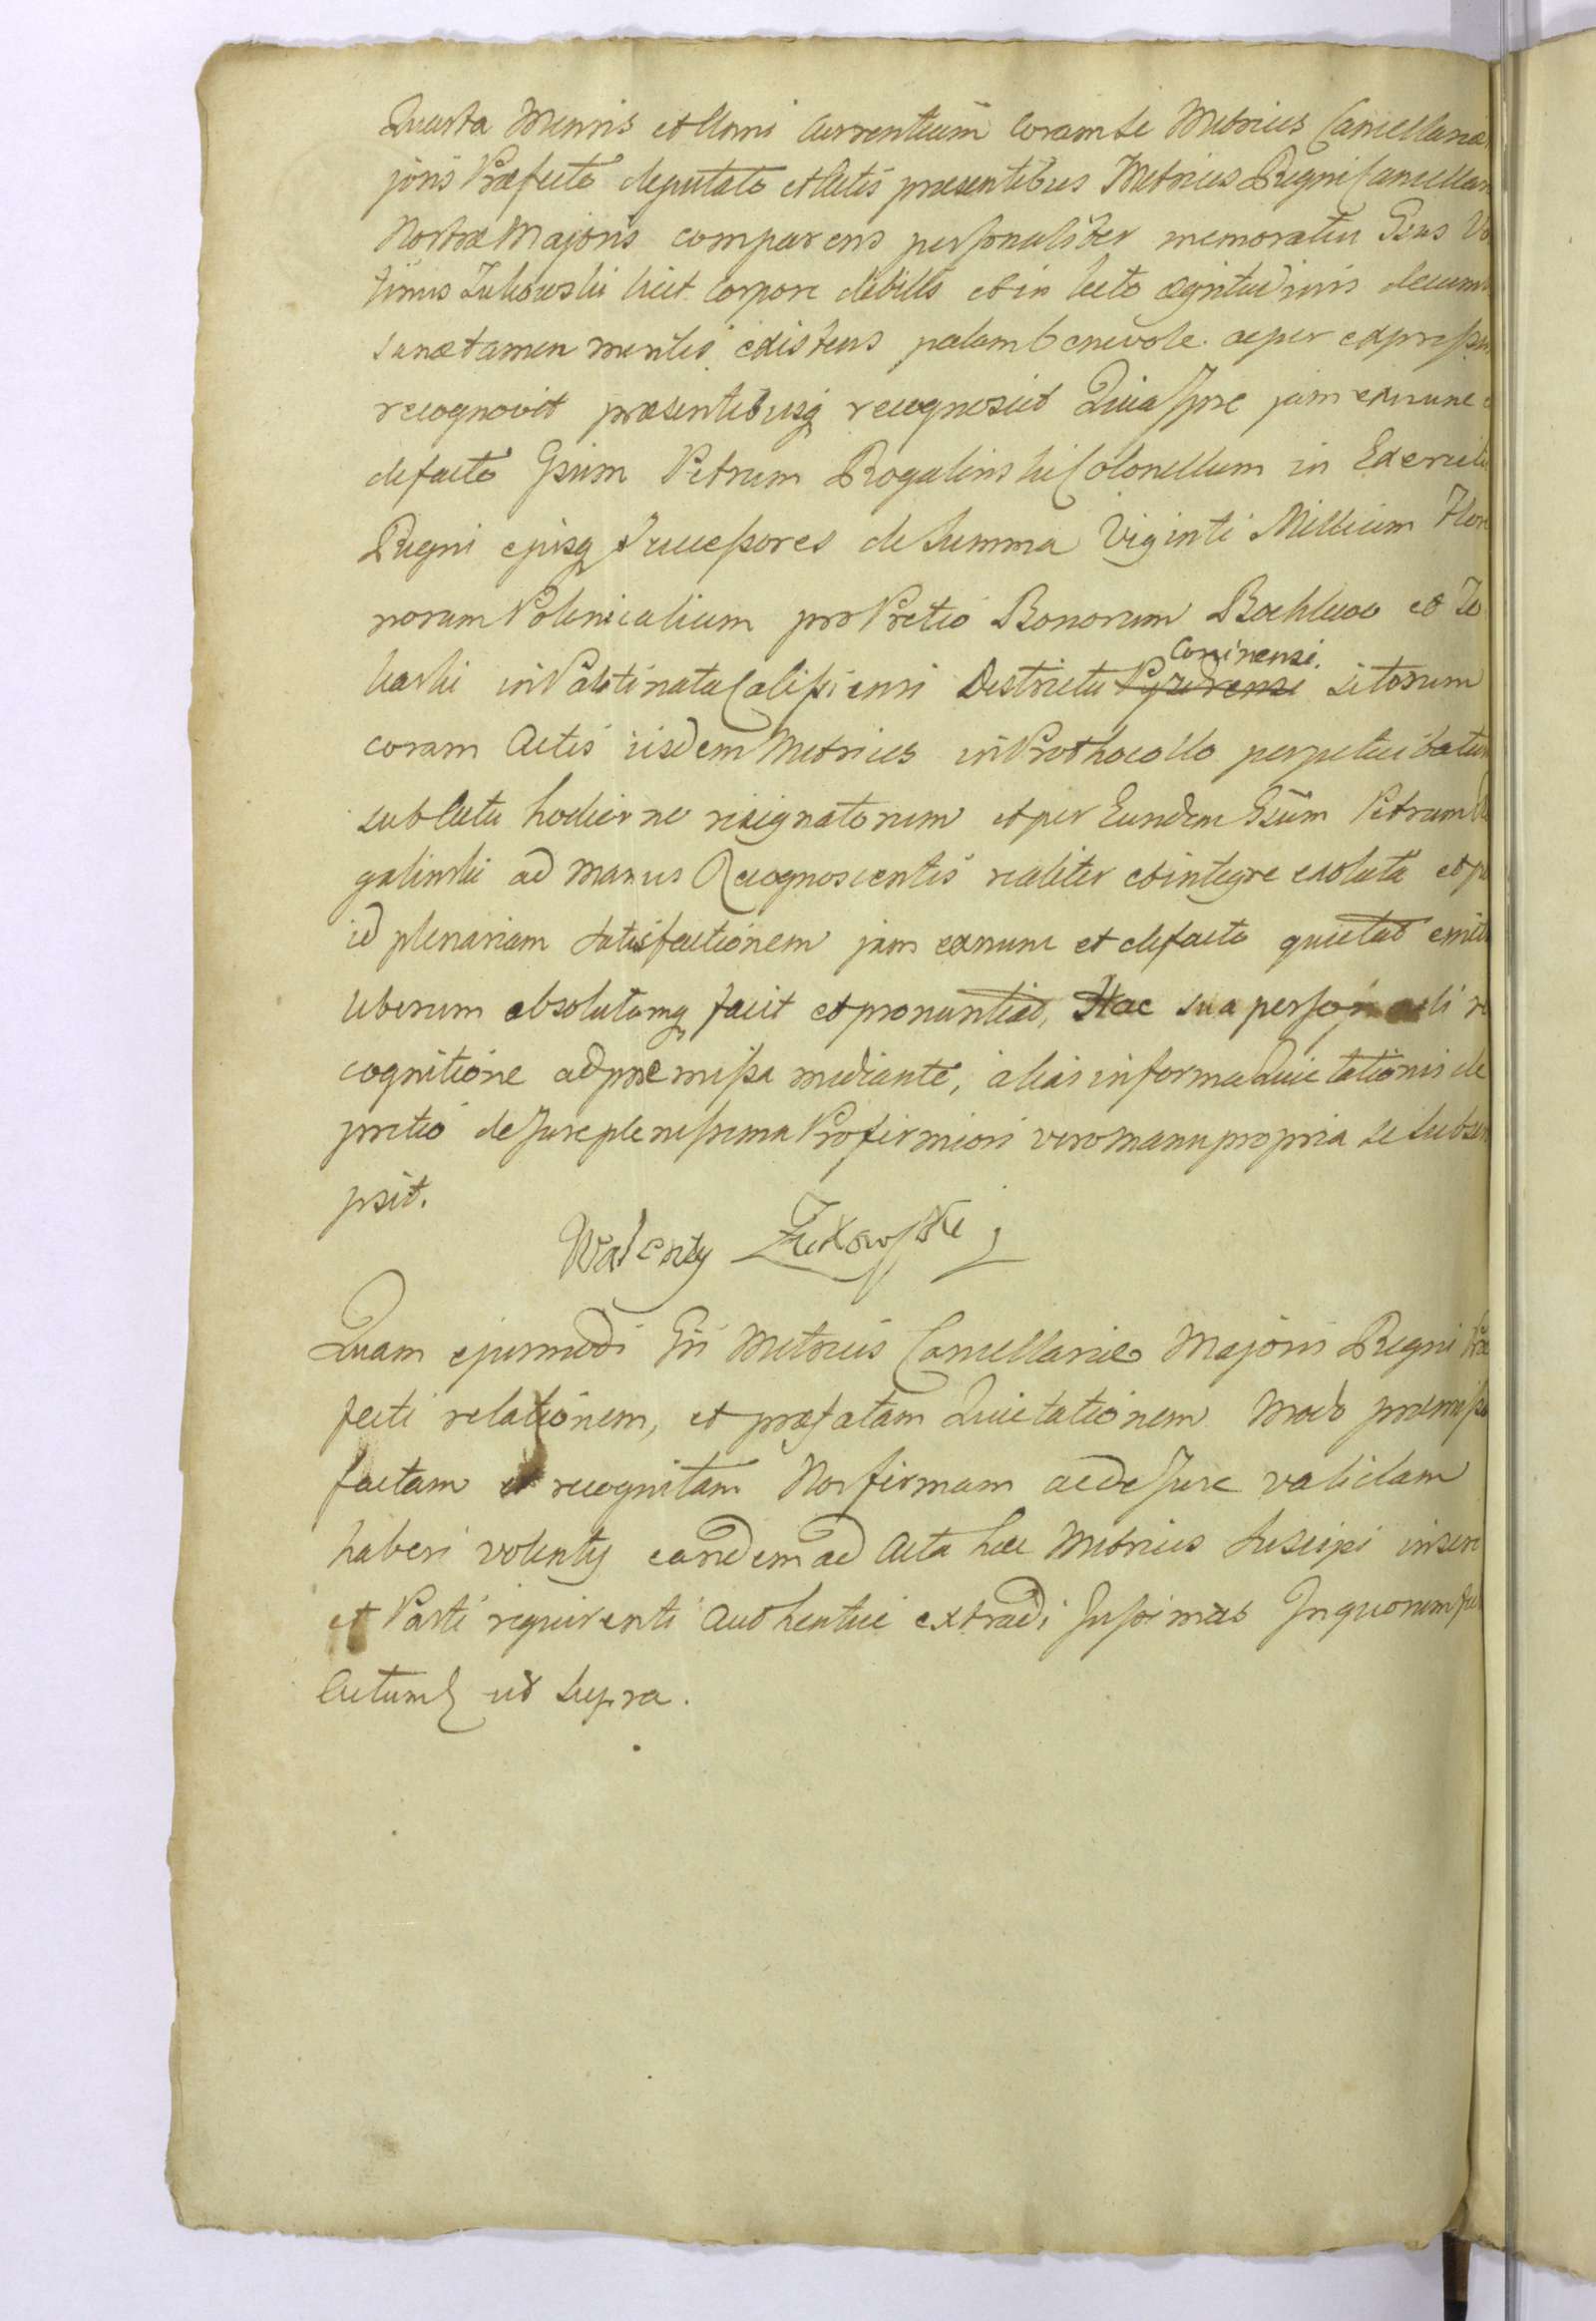 Quarta Mensis et Anni Currentium Coram se Metrices Cancellariæ
joris Præfecto deputato et Actis præsentibus Metrices Regni Cancellar
Nostræ Majoris comparens personaliter memoratus Gsus Va
tinus Zukowski licet Corpore debilis et in lecto ægritudinis decumb
sanæ tamen mentis existens palam benevole ac per expressum
recognovit præsentibusq recognoscit Quia Ipse jam ex nunc e
de facto Gsum Petrum Rogalinski Colonellum in Exercitu
Regni ejusq Successores de Summa Viginti Millium Flore
norum Polonicalium pro Pretio Bonorum Bochlewo et
harki in Palatinatu Calissiensi Districtu Pyzdrensi Coninensi. sitorum
coram Actis iisdem Metrices in Prothocollo perpetuitatum
sub Actu hodierno resignatorum et per Eundem Gsum Petrum Ro
galinski ad manus Recognoscentis realiter et integre exoluta et p
id plenariam satisfactionem jam ex nunc et de facto quietat emitt
liberum absolutumq facit et pronuntiat, Hac sua personali re
cognitione ad præmissa mediante, alias in forma Quietationis de
pretio de Jure plenissima Pro firmiori vero manu propria se subscri
psit.
Walenty Zukowski
Quam ejusmodi Gsi Metrices Cancellariæ Majoris Regni Præ
fecti relationem, et præfatam Quietationem modo præmisso
factam et recognitam Nos firmam ac de Jure validam
haberi volentes eandem ad Acta hæc Metrices Suscipi inseri
et Parti requirenti Authentice extradi Jussimus In quorum fid
Actum ut supra.